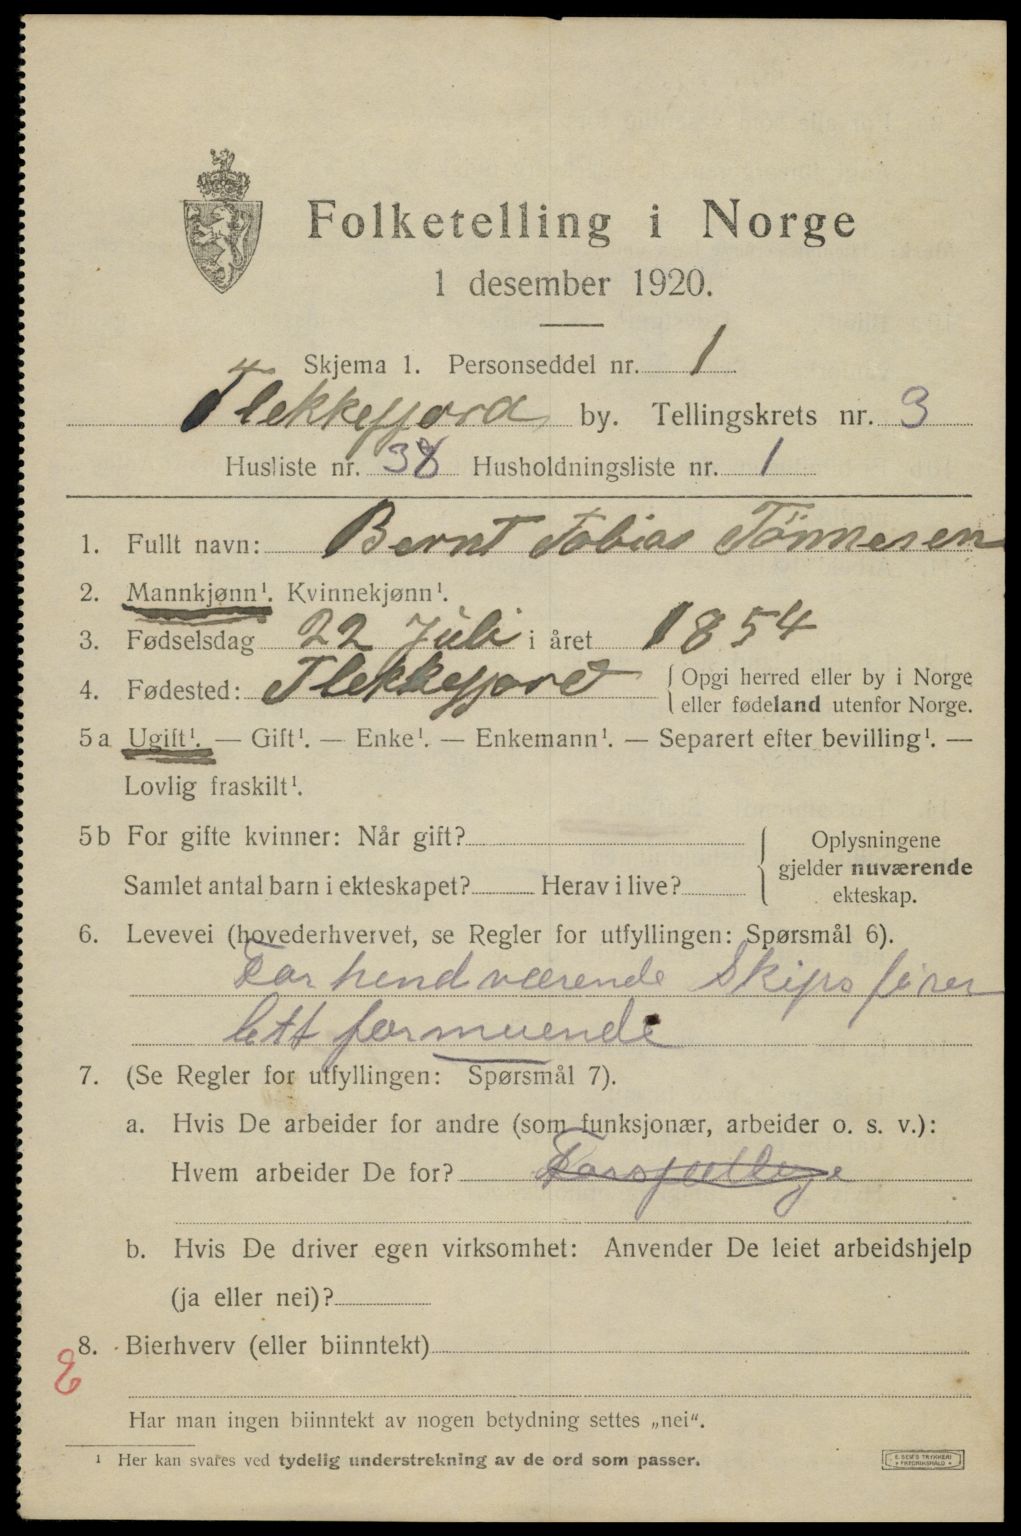 Folketelling i Norge
1 desember 1920.
Skjema 1. Personseddel nr. 1
Flekkefjord by. Tellingskrets nr. 3
Husliste nr. 38 Husholdningsliste nr. 1
1. Fullt navn: Bernt Tobias Tönnesen
2. Mannkjønn¹. Kvinnekjønn¹.
3. Fødselsdag 22 Juli i året 1854
4. Fødested: Flekkefjord { Opgi herred eller by i Norge
eller fødeland utenfor Norge.
5a Ugift¹. — Gift¹. — Enke¹. — Enkemann¹. — Separert efter bevilling¹. —
Lovlig fraskilt¹.
5b For gifte kvinner: Når gift?
Samlet antal barn i ekteskapet? Herav i live?
Oplysningene
gjelder nuværende
ekteskap.
6. Levevei (hovederhvervet, se Regler for utfyllingen: Spørsmål 6).
Forhendværende Skipsfører
lett formuende
7. (Se Regler for utfyllingen: Spørsmål 7).
a. Hvis De arbeider for andre (som funksjonær, arbeider o. s. v.):
Hvem arbeider De for?
b. Hvis De driver egen virksomhet: Anvender De leiet arbeidshjelp
(ja eller nei)?
8. Bierhverv (eller biinntekt)
Har man ingen biinntekt av nogen betydning settes „nei“.
¹ Her kan svares ved tydelig understrekning av de ord som passer.